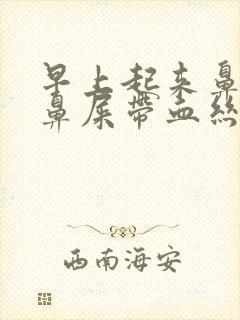 早上起来鼻
鼻屎带血丝
西南海安